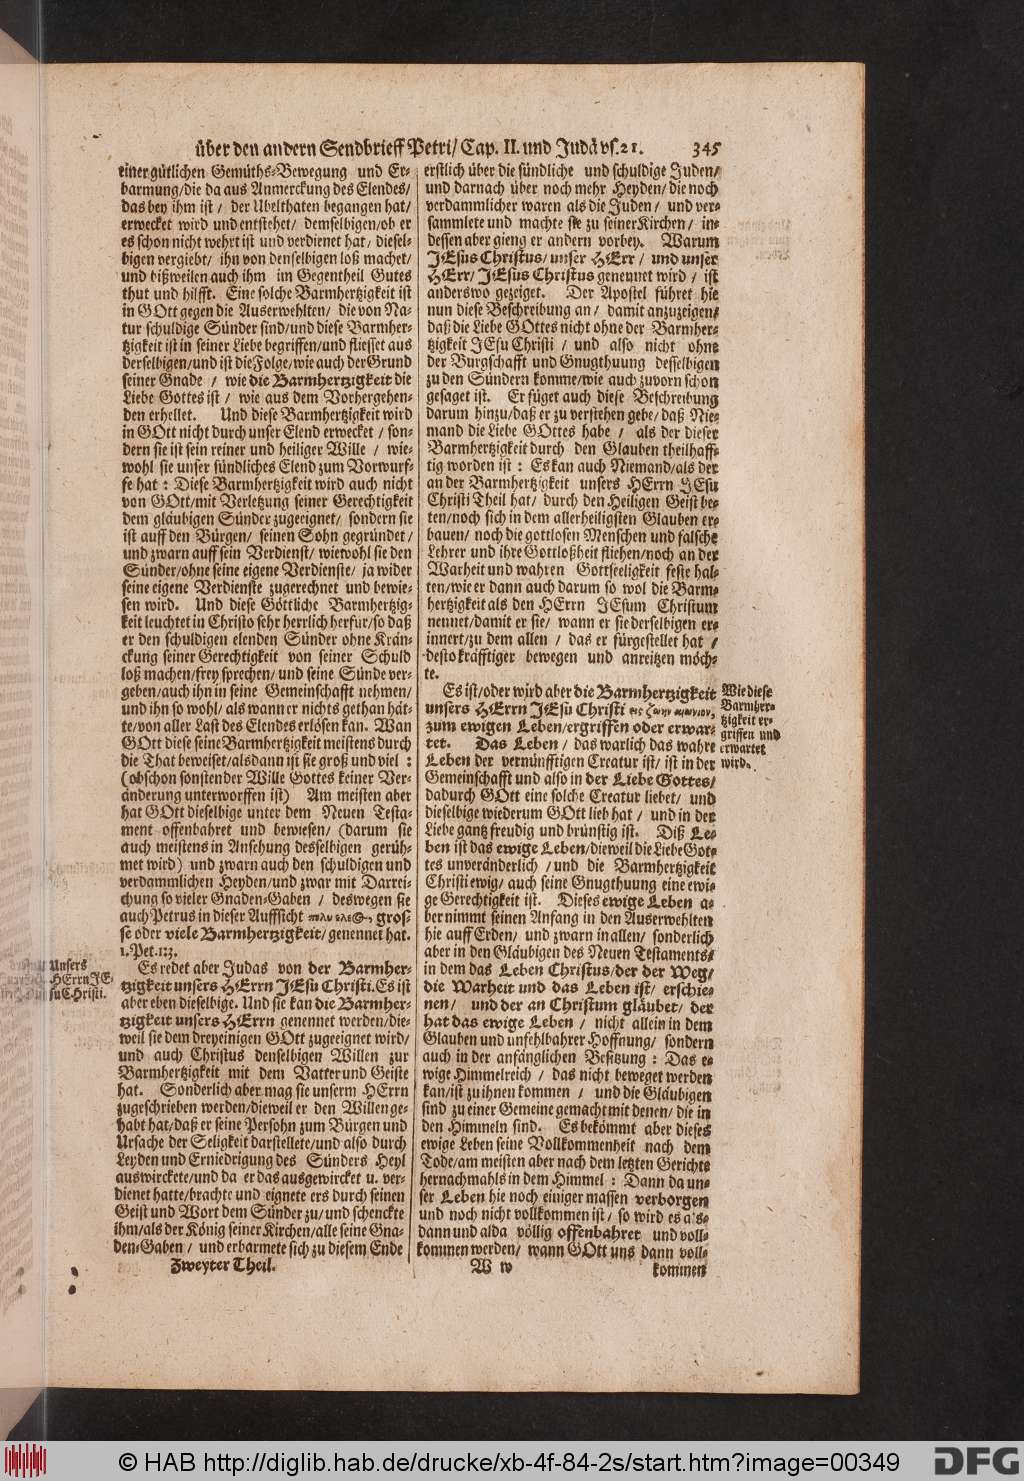 über den andern Sendbrieff Petri/ Cap. II. und Judä vs. 21. 345
einer gütlichen Gemüths-Bewegung und Er-
barmung/die da aus Anmerckung des Elendes/
das bey ihm ist / der Ubelthaten begangen hat/
erwecket wird und entstehet/ demselbigen/ob er
es schon nicht wehrt ist und verdienet hat/ diesel-
bigen vergiebt/ ihn von denselbigen loß machet/
und bißweilen auch ihm im Gegentheil Gutes
thut und hilfft. Eine solche Barmhertzigkeit ist
in GOtt gegen die Auserwehlten/ die von Na-
tur schuldige Sünder sind/und diese Barmher-
tzigkeit ist in seiner Liebe begriffen/und fliesset aus
derselbigen/und ist die Folge/wie auch der Grund
seiner Gnade / wie die Barmhertzigkeit die
Liebe Gottes ist / wie aus dem Vorhergehen-
den erhellet. Und diese Barmhertzigkeit wird
in GOtt nicht durch unser Elend erwecket / son-
dern sie ist sein reiner und heiliger Wille / wie-
wohl sie unser sündliches Elend zum Vorwurf-
fe hat : Diese Barmhertzigkeit wird auch nicht
von GOtt/mit Verletzung seiner Gerechtigkeit
dem gläubigen Sünder zugeeignet/ sondern sie
ist auff den Bürgen/ seinen Sohn gegründet /
und zwarn auff sein Verdienst/ wiewohl sie den
Sünder/ohne seine eigene Verdienste/ ja wider
seine eigene Verdienste zugerechnet und bewie-
sen wird. Und diese Göttliche Barmhertzig-
keit leuchtet in Christo sehr herrlich herfür/so daß
er den schuldigen elenden Sünder ohne Krän-
ckung seiner Gerechtigkeit von seiner Schuld
loß machen/frey sprechen/ und seine Sünde ver-
geben/auch ihn in seine Gemeinschafft nehmen/
und ihn so wohl/ als wann er nichts gethan hät-
te/von aller Last des Elendes erlösen kan. Wan
GOtt diese seine Barmhertzigkeit meistens durch
die That beweiset/alsdann ist sie groß und viel :
(obschon sonsten der Wille Gottes keiner Ver-
änderung unterworffen ist) Am meisten aber
hat GOtt dieselbige unter dem Neuen Testa-
ment offenbahret und bewiesen/ (darum sie
auch meistens in Ansehung desselbigen gerüh-
met wird) und zwarn auch den schuldigen und
verdammlichen Heyden/und zwar mit Darrei-
chung so vieler Gnaden-Gaben / deswegen sie
auch Petrus in dieser Auffsicht gros-
se oder viele Barmhertzigkeit/ genennet hat.
1. Pet. 1:3.
Unsers
HErrn JE-
su Christi.
Es redet aber Judas von der Barmher-
tzigkeit unsers HErrn JEsu Christi. Es ist
aber eben dieselbige. Und sie kan die Barmher-
tzigkeit unsers HErrn genennet werden/die-
weil sie dem dreyeinigen GOtt zugeeignet wird/
und auch Christus denselbigen Willen zur
Barmhertzigkeit mit dem Vatter und Geiste
hat. Sonderlich aber mag sie unserm HErrn
zugeschrieben werden/dieweil er den Willen ge-
habt hat/daß er seine Persohn zum Bürgen und
Ursache der Seligkeit darstellete/und also durch
Leyden und Erniedrigung des Sünders Heyl
auswirckete/und da er das ausgewircket u. ver-
dienet hatte/brachte und eignete ers durch seinen
Geist und Wort dem Sünder zu/ und schenckte
ihm/als der König seiner Kirchen/alle seine Gna-
den-Gaben / und erbarmete sich zu diesem Ende
Zweyter Theil.
erstlich über die sündliche und schuldige Juden/
und darnach über noch mehr Heyden/die noch
verdammlicher waren als die Juden/ und ver-
sammlete und machte sie zu seiner Kirchen/ in-
dessen aber gieng er andern vorbey. Warum
JEsus Christus/unser HErr / und unser
HErr/ JEsus Christus genennet wird / ist
anderswo gezeiget. Der Apostel führet hie
nun diese Beschreibung an/ damit anzuzeigen/
daß die Liebe GOttes nicht ohne der Barmher-
tzigkeit JEsu Christi / und also nicht ohne
der Bürgschafft und Gnugthuung desselbigen
zu den Sündern komme/wie auch zuvorn schon
gesaget ist. Er füget auch diese Beschreibung
darum hinzu/daß er zu verstehen gebe/daß Nie-
mand die Liebe GOttes habe / als der dieser
Barmhertzigkeit durch den Glauben theilhaff-
tig worden ist : Es kan auch Niemand/als der
an der Barmhertzigkeit unsers HErrn JEsu
Christi Theil hat/ durch den Heiligen Geist be-
ten/noch sich in dem allerheiligsten Glauben er-
bauen/ noch die gottlosen Menschen und falsche
Lehrer und ihre Gottloßheit fliehen/noch an der
Warheit und wahren Gottseeligkeit feste hal-
ten/wie er dann auch darum so wol die Barm-
hertzigkeit als den HErrn JEsum Christum
nennet/damit er sie/ wann er sie derselbigen er-
innert/zu dem allen / das er fürgestellet hat /
desto kräfftiger bewegen und anreitzen möch-
te.
Es ist/oder wird aber die Barmhertzigkeit
unsers HErrn JEsu Christi εις ζωην αιωνιον,
zum ewigen Leben/ergriffen oder erwar-
tet. Das Leben / das warlich das wahre
Leben der vernünfftigen Creatur ist/ ist in der
Gemeinschafft und also in der Liebe Gottes/
dadurch GOtt eine solche Creatur liebet/ und
dieselbige wiederum GOtt lieb hat / und in der
Liebe gantz freudig und brünstig ist. Diß Le-
ben ist das ewige Leben/dieweil die Liebe Got-
tes unveränderlich / und die Barmhertzigkeit
Christi ewig/ auch seine Gnugthuung eine ewi-
ge Gerechtigkeit ist. Dieses ewige Leben a-
ber nimmt seinen Anfang in den Auserwehlten
hie auff Erden/ und zwarn in allen/ sonderlich
aber in den Gläubigen des Neuen Testaments/
in dem das Leben Christus/der der Weg/
die Warheit und das Leben ist/ erschie-
nen/ und der an Christum gläubet/ der
hat das ewige Leben / nicht allein in dem
Glauben und unfehlbahrer Hoffnung/ sondern
auch in der anfänglichen Besitzung : Das e-
wige Himmelreich / das nicht beweget werden
kan/ist zu ihnen kommen / und die Gläubigen
sind zu einer Gemeine gemacht mit denen/ die in
den Himmeln sind. Es bekömmt aber dieses
ewige Leben seine Vollkommenheit nach dem
Tode/am meisten aber nach dem letzten Gerichte
hernachmahls in dem Himmel : Dann da un-
ser Leben hie noch einiger massen verborgen
und noch nicht vollkommen ist/ so wird es als-
dann und alda völlig offenbahret und voll-
kommen werden/ wann GOtt uns dann voll-
Wie diese
Barmher-
tzigkeit er-
griffen und
erwartet
wird.
W w
kommen
© HAB http://diglib.hab.de/drucke/xb-4f-84-2s/start.htm?image=00349
DFG